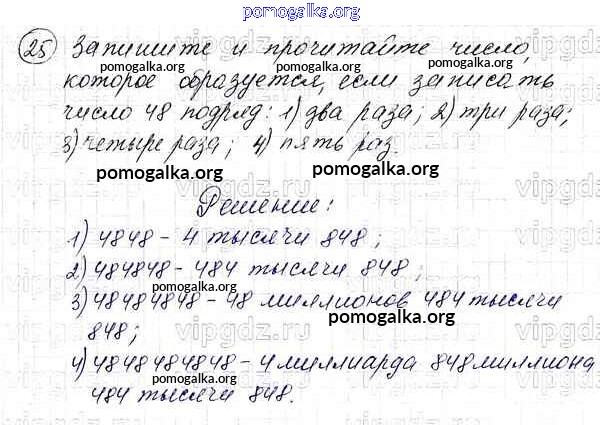 pomogalka.org
25 Запишите и прочитайте число,
которое образуется, если записать
число 48 подряд: 1) два раза; 2) три раза;
3) четыре раза; 4) пять раз.
pomogalka.org pomogalka.org
Решение:
1) 4848 - 4 тысячи 848;
2) 484848 - 484 тысячи 848;
pomogalka.org
3) 48484848 - 48 миллионов 484 тысячи
848;
pomogalka.org
4) 4848484848 - 4 миллиарда 848 миллиона
pomogalka.org
484 тысячи 848.
pomogalka.org